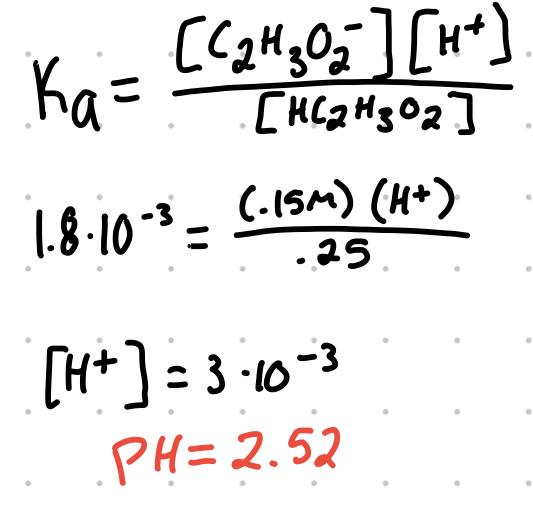 Ka = [C₂H₃O₂⁻][H⁺] / [HC₂H₃O₂]
1.8·10⁻³ = (.15M)(H⁺) / .25
[H⁺] = 3·10⁻³
PH = 2.52